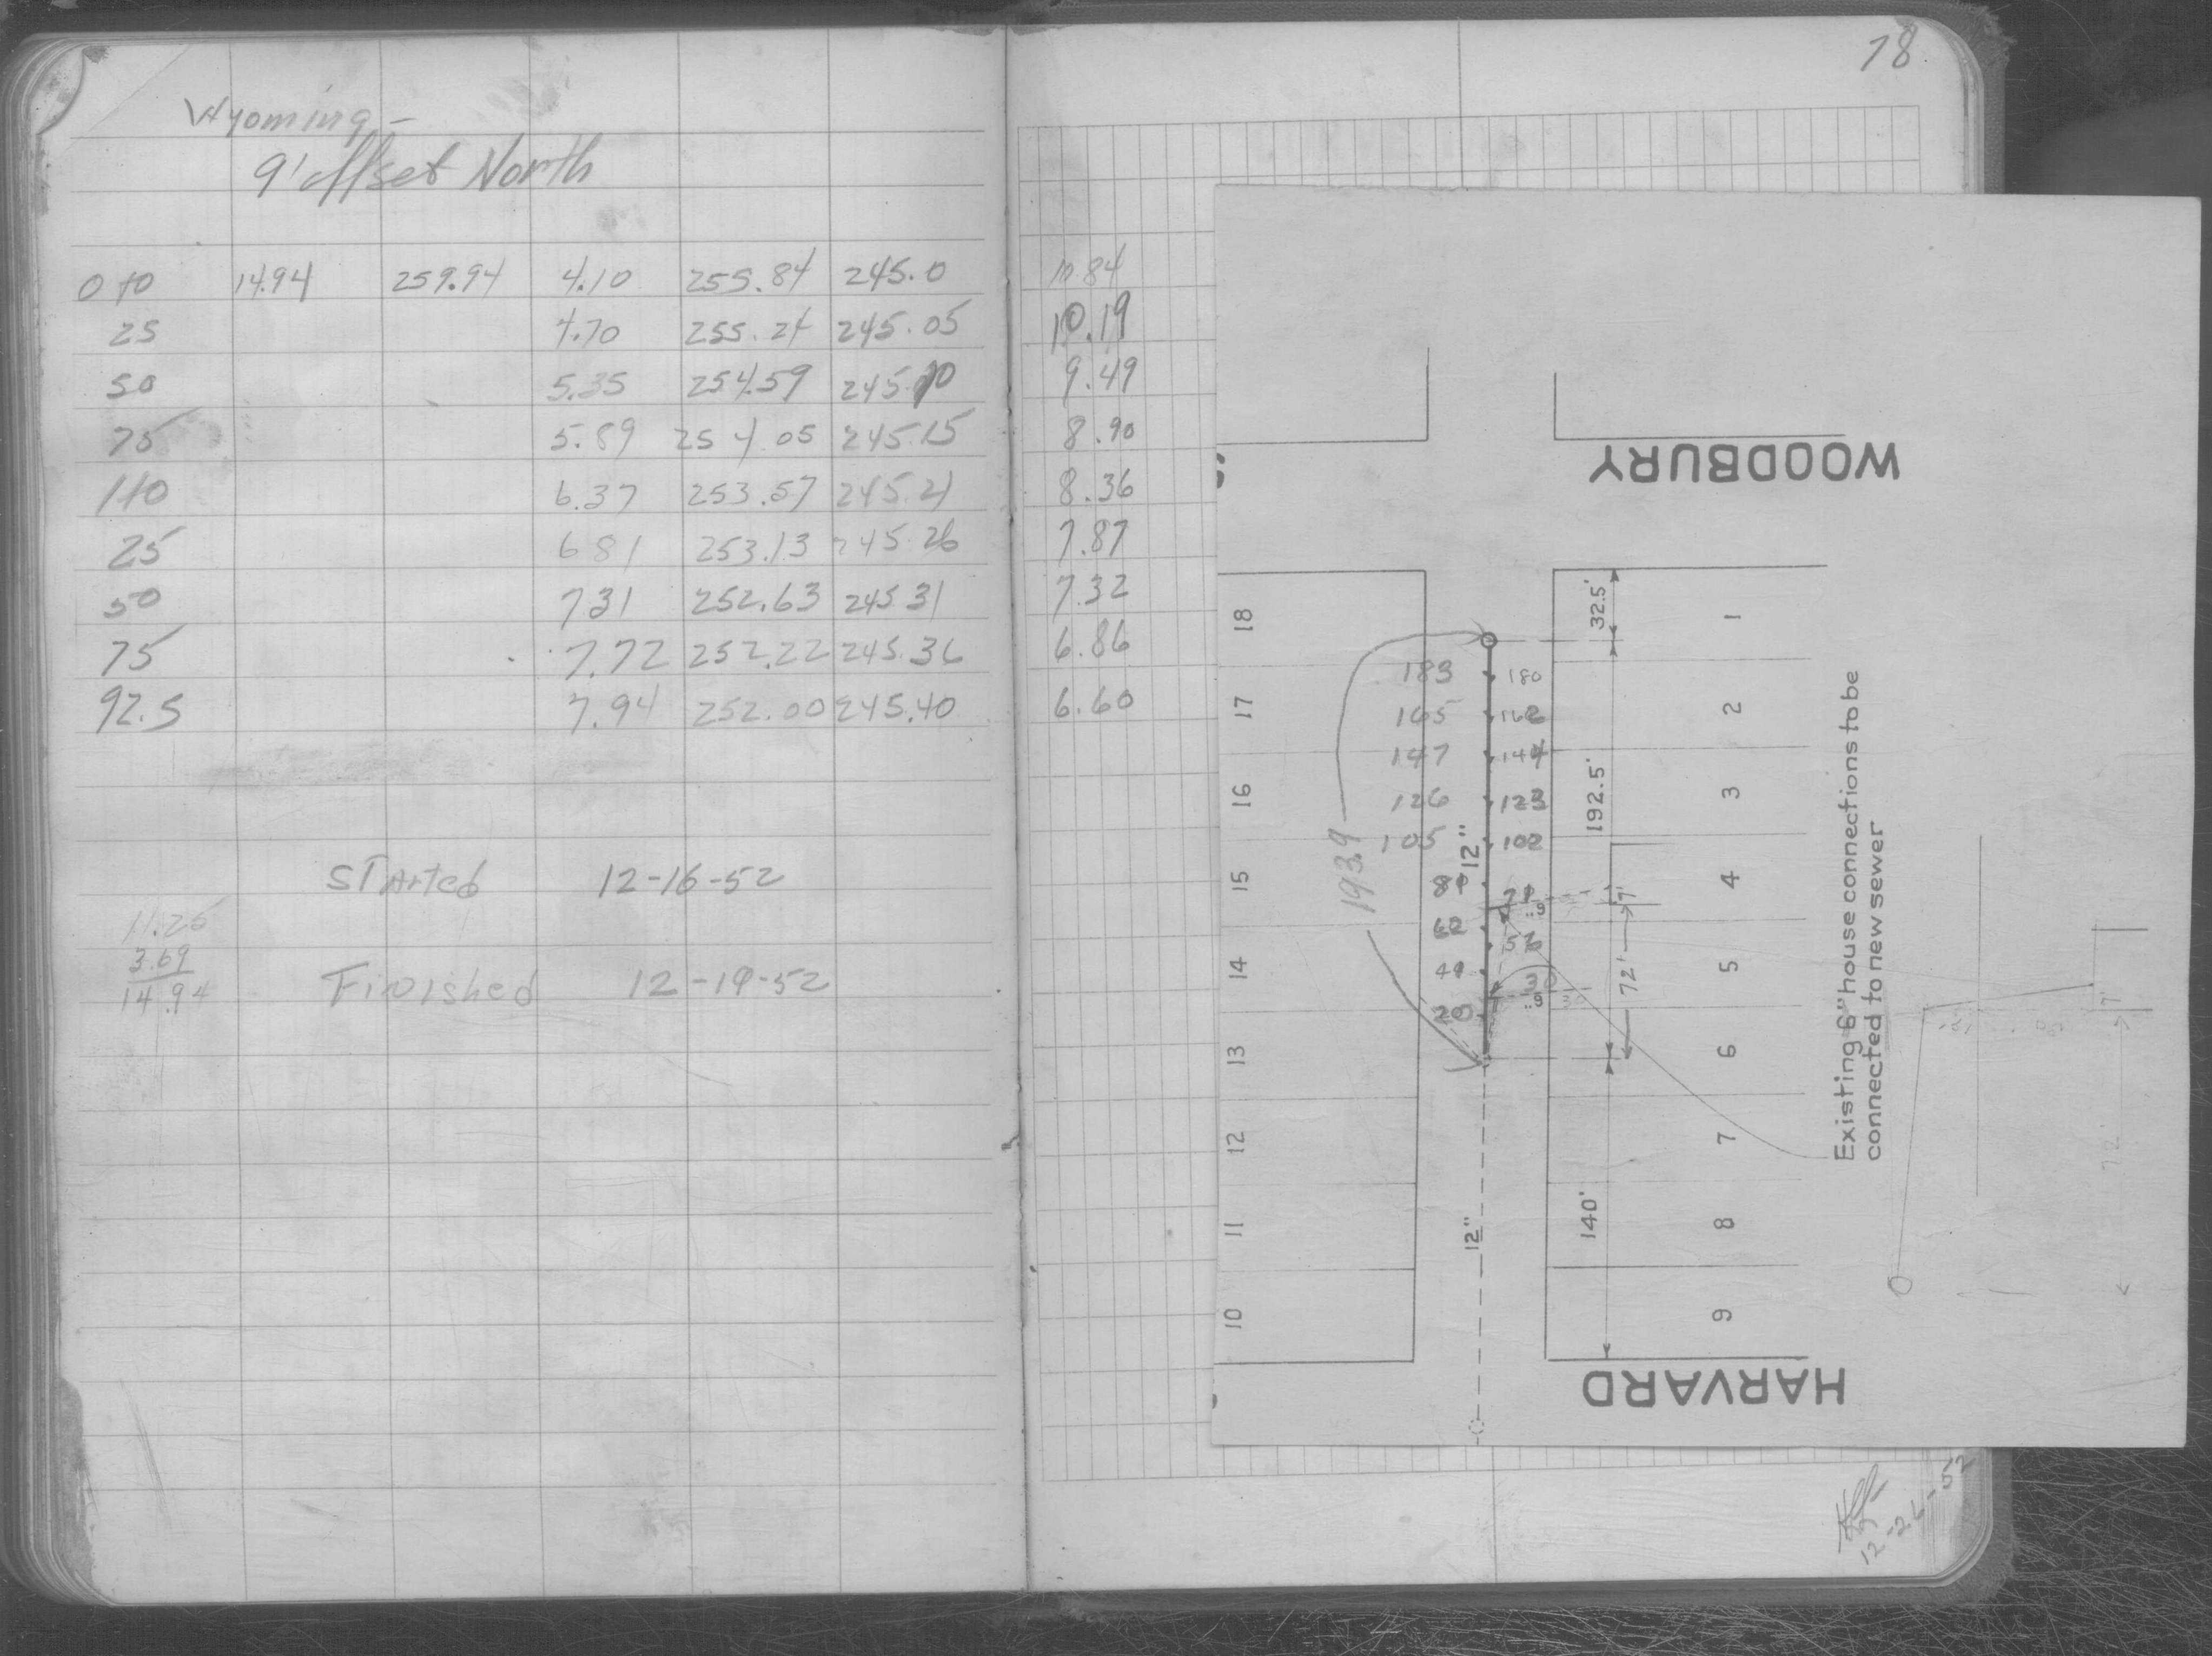 78
Wyoming -
9' offset North
0+0 14.94 259.94 4.10 255.84 245.0 10.84
25 4.70 255.24 245.05 10.19
50 5.35 254.59 245.10 9.49
75 5.89 254.05 245.15 8.90
1+0 6.37 253.57 245.21 8.36
25 6 81 253.13 245 26 7.87
50 7 31 252.63 245 31 7.32
75 7.72 252.22 245.36 6.86
92.5 7.94 252.00 245.40 6.60
STArted 12-16-52
11.25
3.69
14.94
Finished 12-19-52
WOODBURY
18
17
16
15
14
13
12
11
10
1
2
3
4
5
6
7
8
9
32.5'
192.5'
72'
7'
140'
193.9
183 180
165 162
147 144
126 123
105 102
62
20
12"
12"
Existing 6" house connections to be
connected to new sewer
7'
72'
HARVARD
12-26-52